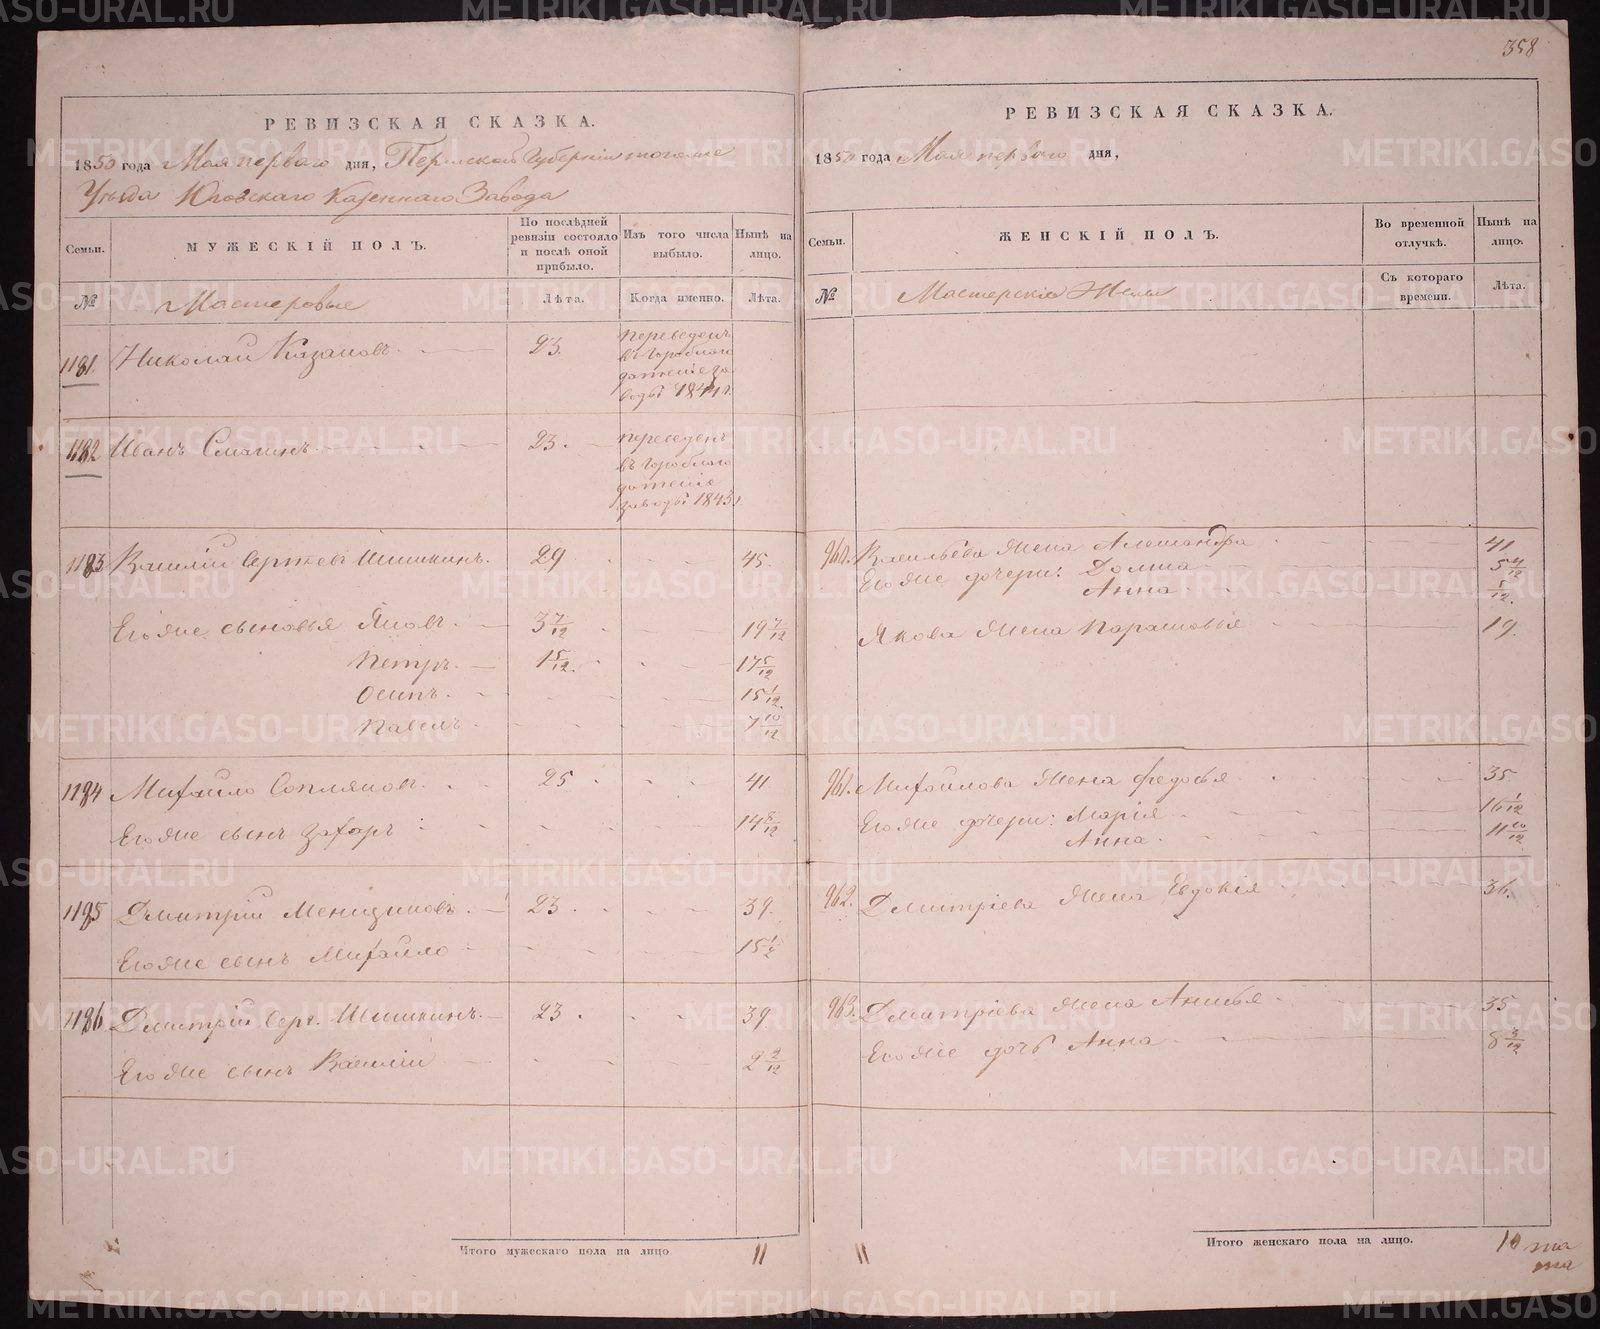 358
РЕВИЗСКАЯ СКАЗКА.
1850 года Мая перваго дня, Пермской Губернии тогоже
Уѣзда Юговскаго Казеннаго Завода
Семьи. МУЖЕСКІЙ ПОЛЪ. По послѣдней ревизіи состояло и послѣ оной прибыло. Изъ того числа выбыло. Нынѣ на лицо.
№ Мастеровые Лѣта. Когда именно. Лѣта.
1181 Николай Казановъ 23. переведенъ
въ Гороблаго
датскіе за
воды 1841 г.
1182 Иванъ Смагинъ 23. переведенъ
въ Гороблаго
датскіе
заводы 1843 г.
1183 Василій Сергѣевъ Шишкинъ. 29 45.
Его же сыновья Яковъ. 3 7/12 19 7/12
Петръ. 1 5/12. 17 5/12
Осипъ. 15 1/12.
Павелъ 7 10/12
1184 Михайло Сопляковъ. 25 41
Его же сынъ Захаръ 14 8/12
1185 Дмитрій 23. 39.
Его же сынъ Михайло 15 1/2
1186 Дмитрій Серг. Шишкинъ. 23. 39
Его же сынъ Василій 2 2/12
Итого мужескаго пола на лицо 11
РЕВИЗСКАЯ СКАЗКА.
1850 года Мая перваго дня,
Семьи. ЖЕНСКІЙ ПОЛЪ. Во временной отлучкѣ. Нынѣ на лицо.
№ Мастерскіе Жены Съ котораго времени. Лѣта.
960. Васильева жена Александра 41
Его же дочери: Домна 5 4/12
Анна 5/12.
Якова жена Парасковья 19.
961. Михайлова жена Федосья 35
Его же дочери: Марія 16 1/12
Анна 11 10/12
962. Дмитріева жена Евдокія 36.
963. Дмитріева жена Анисья 35
Его же дочь Анна 8 3/12
11 Итого женскаго пола на лицо. 10